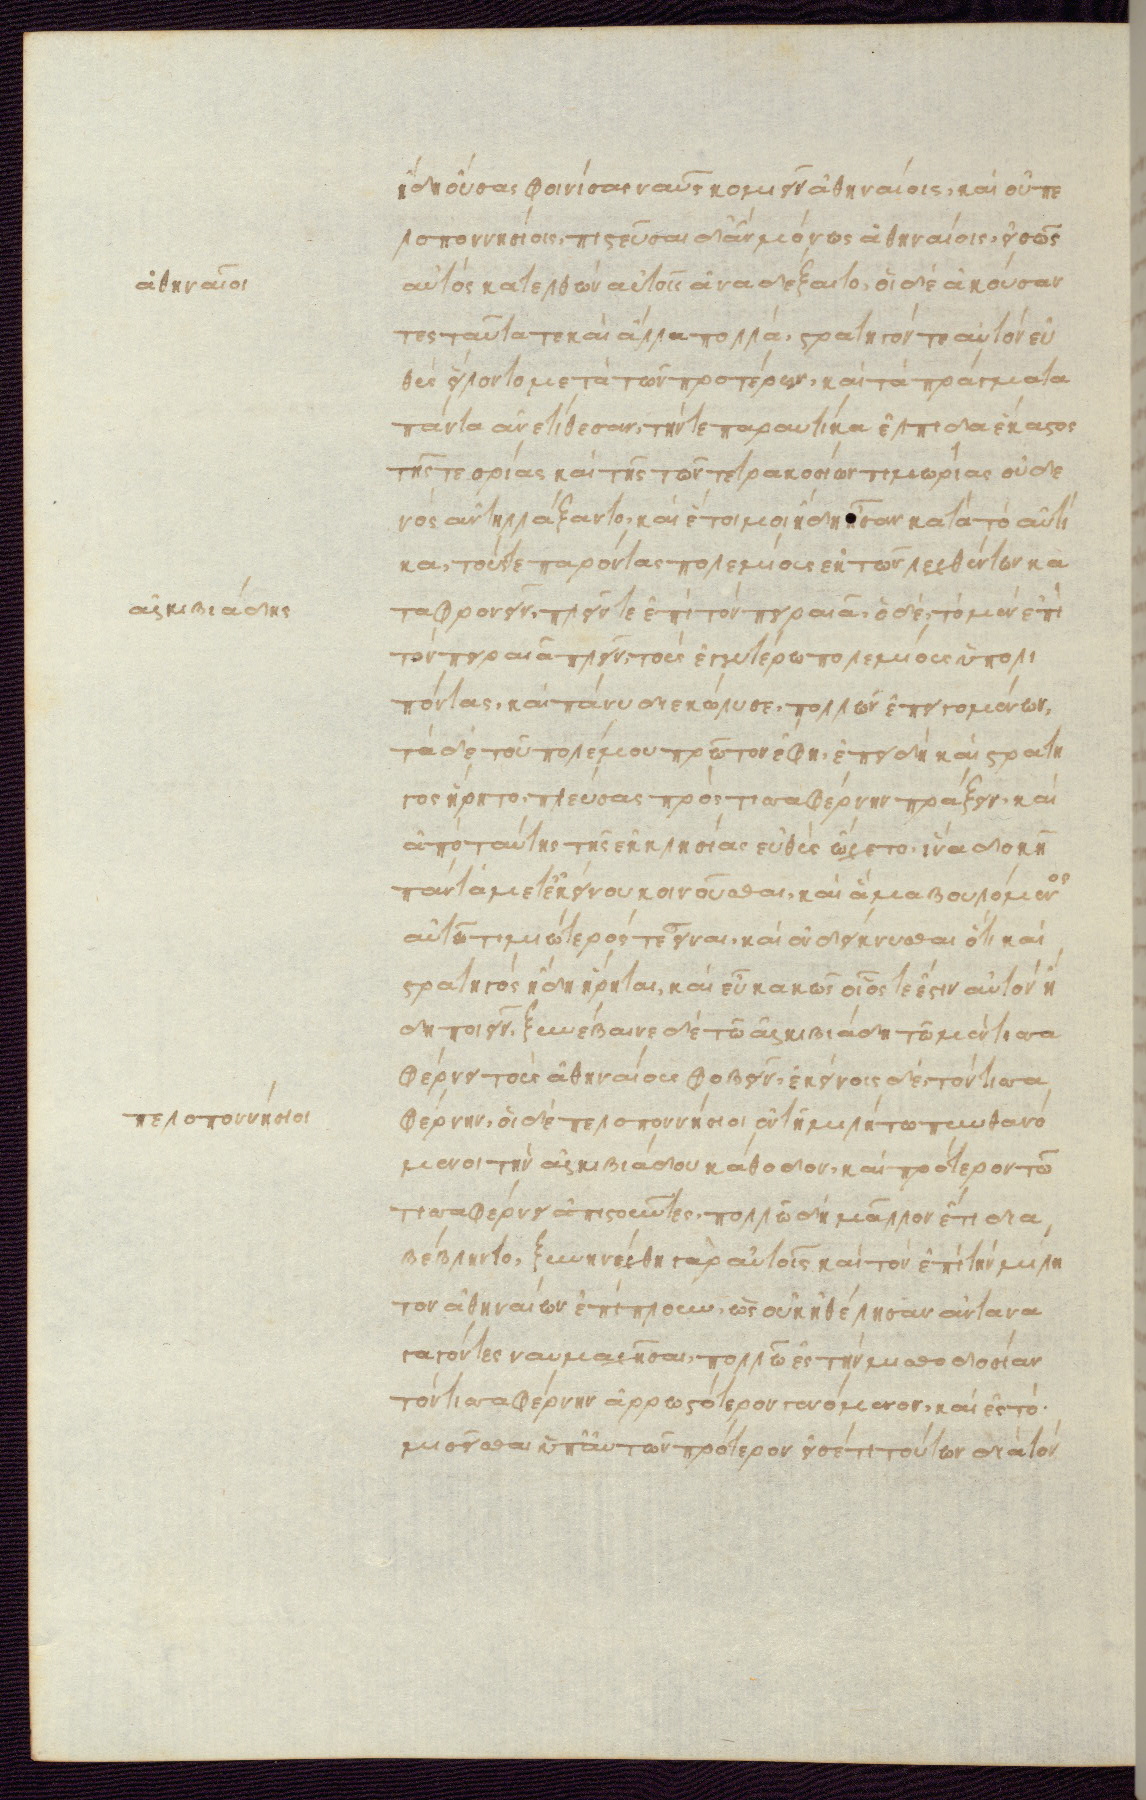 ἤδη οὔσας φοινίσας ναῦς κομιεῖν ἀθηναίοις, καὶ οὐ πε
λοποννησίοις, πιστεῦσαι δ' ἂν μόνως ἀθηναίοις, εἰ σῶς
ἀθηναῖοι
αὐτὸς κατελθὼν αὐτοῖς ἀναδέξαιτο, οἱ δὲ ἀκούσαν
τες ταῦτά τε καὶ ἄλλα πολλὰ, στρατηγόν τε αὐτὸν εὐ
θὺς εἵλοντο μετὰ τῶν προτέρων, καὶ τὰ πράγματα
πάντα ἀνετίθεσαν, τήν τε παραυτίκα ἐλπίδα ἕκαστος
τῆς τε σωρίας καὶ τῆς τῶν τετρακοσίων τιμωρίας οὐδε
νὸς ἂν ἠλλάξαντο, καὶ ἕτοιμοι ἤδη ἦσαν κατὰ τὸ αὐτί
κα, τούς τε παρόντας πολεμίους ἐκ τῶν λεχθέντων κα
ἀλκιβιάδης
ταφρονεῖν, πλεῖν τε ἐπὶ τὸν πειραιᾶ, ὁ δὲ, τὸ μὲν ἐπὶ
τὸν πειραιᾶ πλεῖν, τοὺς ἐγγυτέρω πολεμίους ὑπολι
πόντας, καὶ πάνυ διεκώλυσε, πολλῶν ἐπειγομένων,
τὰ δὲ τοῦ πολέμου πρῶτον ἔφη, ἐπειδὴ καὶ στρατη
γὸς ᾕρητο, πλεύσας πρὸς τισσαφέρνην πράξειν, καὶ
ἀπὸ ταύτης τῆς ἐκκλησίας εὐθὺς ᾤχετο, ἵνα δοκῇ
πάντα μετ' ἐκείνου κοινοῦσθαι, καὶ ἅμα βουλόμενος
αὐτῶ τιμιώτερός τε εἶναι, καὶ ἐνδείκνυσθαι ὅτι καὶ
στρατηγὸς ἤδη ᾕρηται, καὶ εὖ κακῶς οἷός τε ἐστὶν αὐτὸν ἤ
δη ποιεῖν, ξυνέβαινε δὲ τῶ ἀλκιβιάδη τῶ μὲν τισσα
φέρνει τοὺς ἀθηναίους φοβεῖν, ἐκείνοις δὲ, τὸν τισσα
πελοποννήσιοι
φέρνην, οἱ δὲ πελοποννήσιοι ἐν τῇ μιλήτω πυνθανό
μενοι τὴν ἀλκιβιάδου κάθοδον, καὶ πρότερον τῶ
τισσαφέρνει ἀπιστοῦντες, πολλῶ δὴ μᾶλλον ἔτι δια
βέβληντο, ξυνηνέχθη γὰρ αὐτοῖς καὶ τὸν ἐπὶ τὴν μίλη
τον ἀθηναίων ἐπίπλουν, ὡς οὐκ ἠθέλησαν ἀντανα
γαγόντες ναυμαχῆσαι, πολλῶ ἐς τὴν μισθοδοσίαν
τὸν τισσαφέρνην ἀρρωστότερον γενόμενον, καὶ ἐς τὸ
μισεῖσθαι ὑπ' αὐτῶν πρότερον εἰσέτι τούτων διὰ τὸν